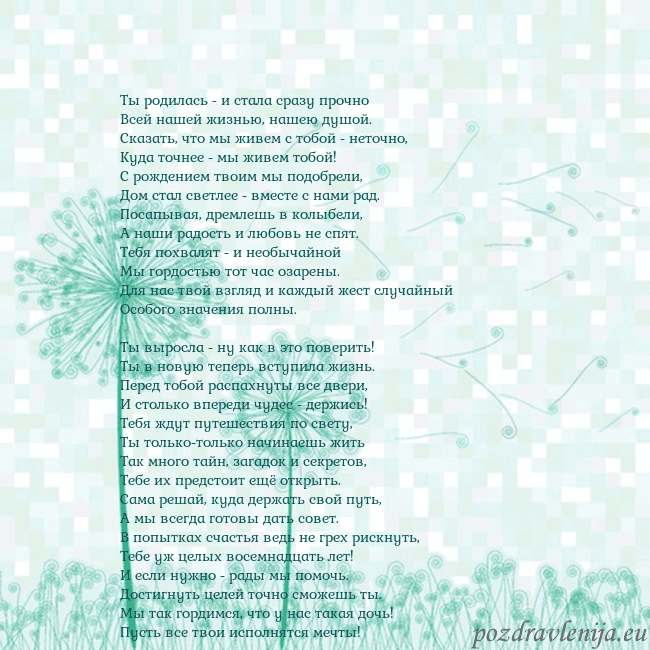 Ты родилась - и стала сразу прочно
Всей нашей жизнью, нашею душой.
Сказать, что мы живем с тобой - неточно,
Куда точнее - мы живем тобой!
С рождением твоим мы подобрели,
Дом стал светлее - вместе с нами рад.
Посапывая, дремлешь в колыбели,
А наши радость и любовь не спят.
Тебя похвалят - и необычайной
Мы гордостью тот час озарены.
Для нас твой взгляд и каждый жест случайный
Особого значения полны.

Ты выросла - ну как в это поверить!
Ты в новую теперь вступила жизнь.
Перед тобой распахнуты все двери,
И столько впереди чудес - держись!
Тебя ждут путешествия по свету,
Ты только-только начинаешь жить
Так много тайн, загадок и секретов,
Тебе их предстоит ещё открыть.
Сама решай, куда держать свой путь,
А мы всегда готовы дать совет.
В попытках счастья ведь не грех рискнуть,
Тебе уж целых восемнадцать лет!
И если нужно - рады мы помочь.
Достигнуть целей точно сможешь ты,
Мы так гордимся, что у нас такая дочь!
Пусть все твои исполнятся мечты!
pozdravlenija.eu